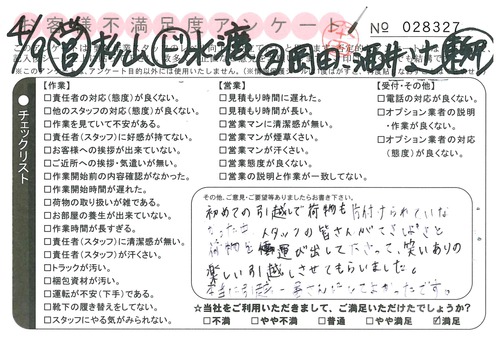 お客様不満足度アンケート
No 028327
チェックリスト
【作業】
□責任者の対応(態度)が良くない。
□他のスタッフの対応(態度)が良くない。
□作業を見ていて不安がある。
□責任者(スタッフ)に好感が持てない。
□お客様への挨拶が出来ていない。
□ご近所への挨拶・気遣いが無い。
□作業開始前の内容確認がなかった。
□作業開始時間が遅れた。
□荷物の取り扱いが雑である。
□お部屋の養生が出来ていない。
□作業時間が長すぎる。
□責任者(スタッフ)に清潔感が無い。
□責任者(スタッフ)が汗くさい。
□トラックが汚い。
□梱包資材が汚い。
□運転が不安(下手)である。
□靴下の履き替えをしてない。
□スタッフにやる気がみられない。
【営業】
□見積もり時間に遅れた。
□見積もり時間が長い。
□営業マンに清潔感が無い。
□営業マンが煙草くさい。
□営業マンが汗くさい。
□営業態度が良くない。
□営業の説明と作業が一致してない。
【受付・その他】
□電話の対応が良くない。
□オプション業者の説明
・作業が良くない。
□オプション業者の対応
(態度)が良くない。
その他、ご意見・ご要望等ありましたらお書き下さい。
初めての引越しで荷物も片付けられていな
スタッフの皆さんがてきぱきと
荷物を運び出して下さって、笑いありの
楽しい引越しさせてもらいました。
☆当社をご利用いただきまして、ご満足いただけたでしょうか?
□不満 □やや不満 □普通 □やや満足 ☑満足